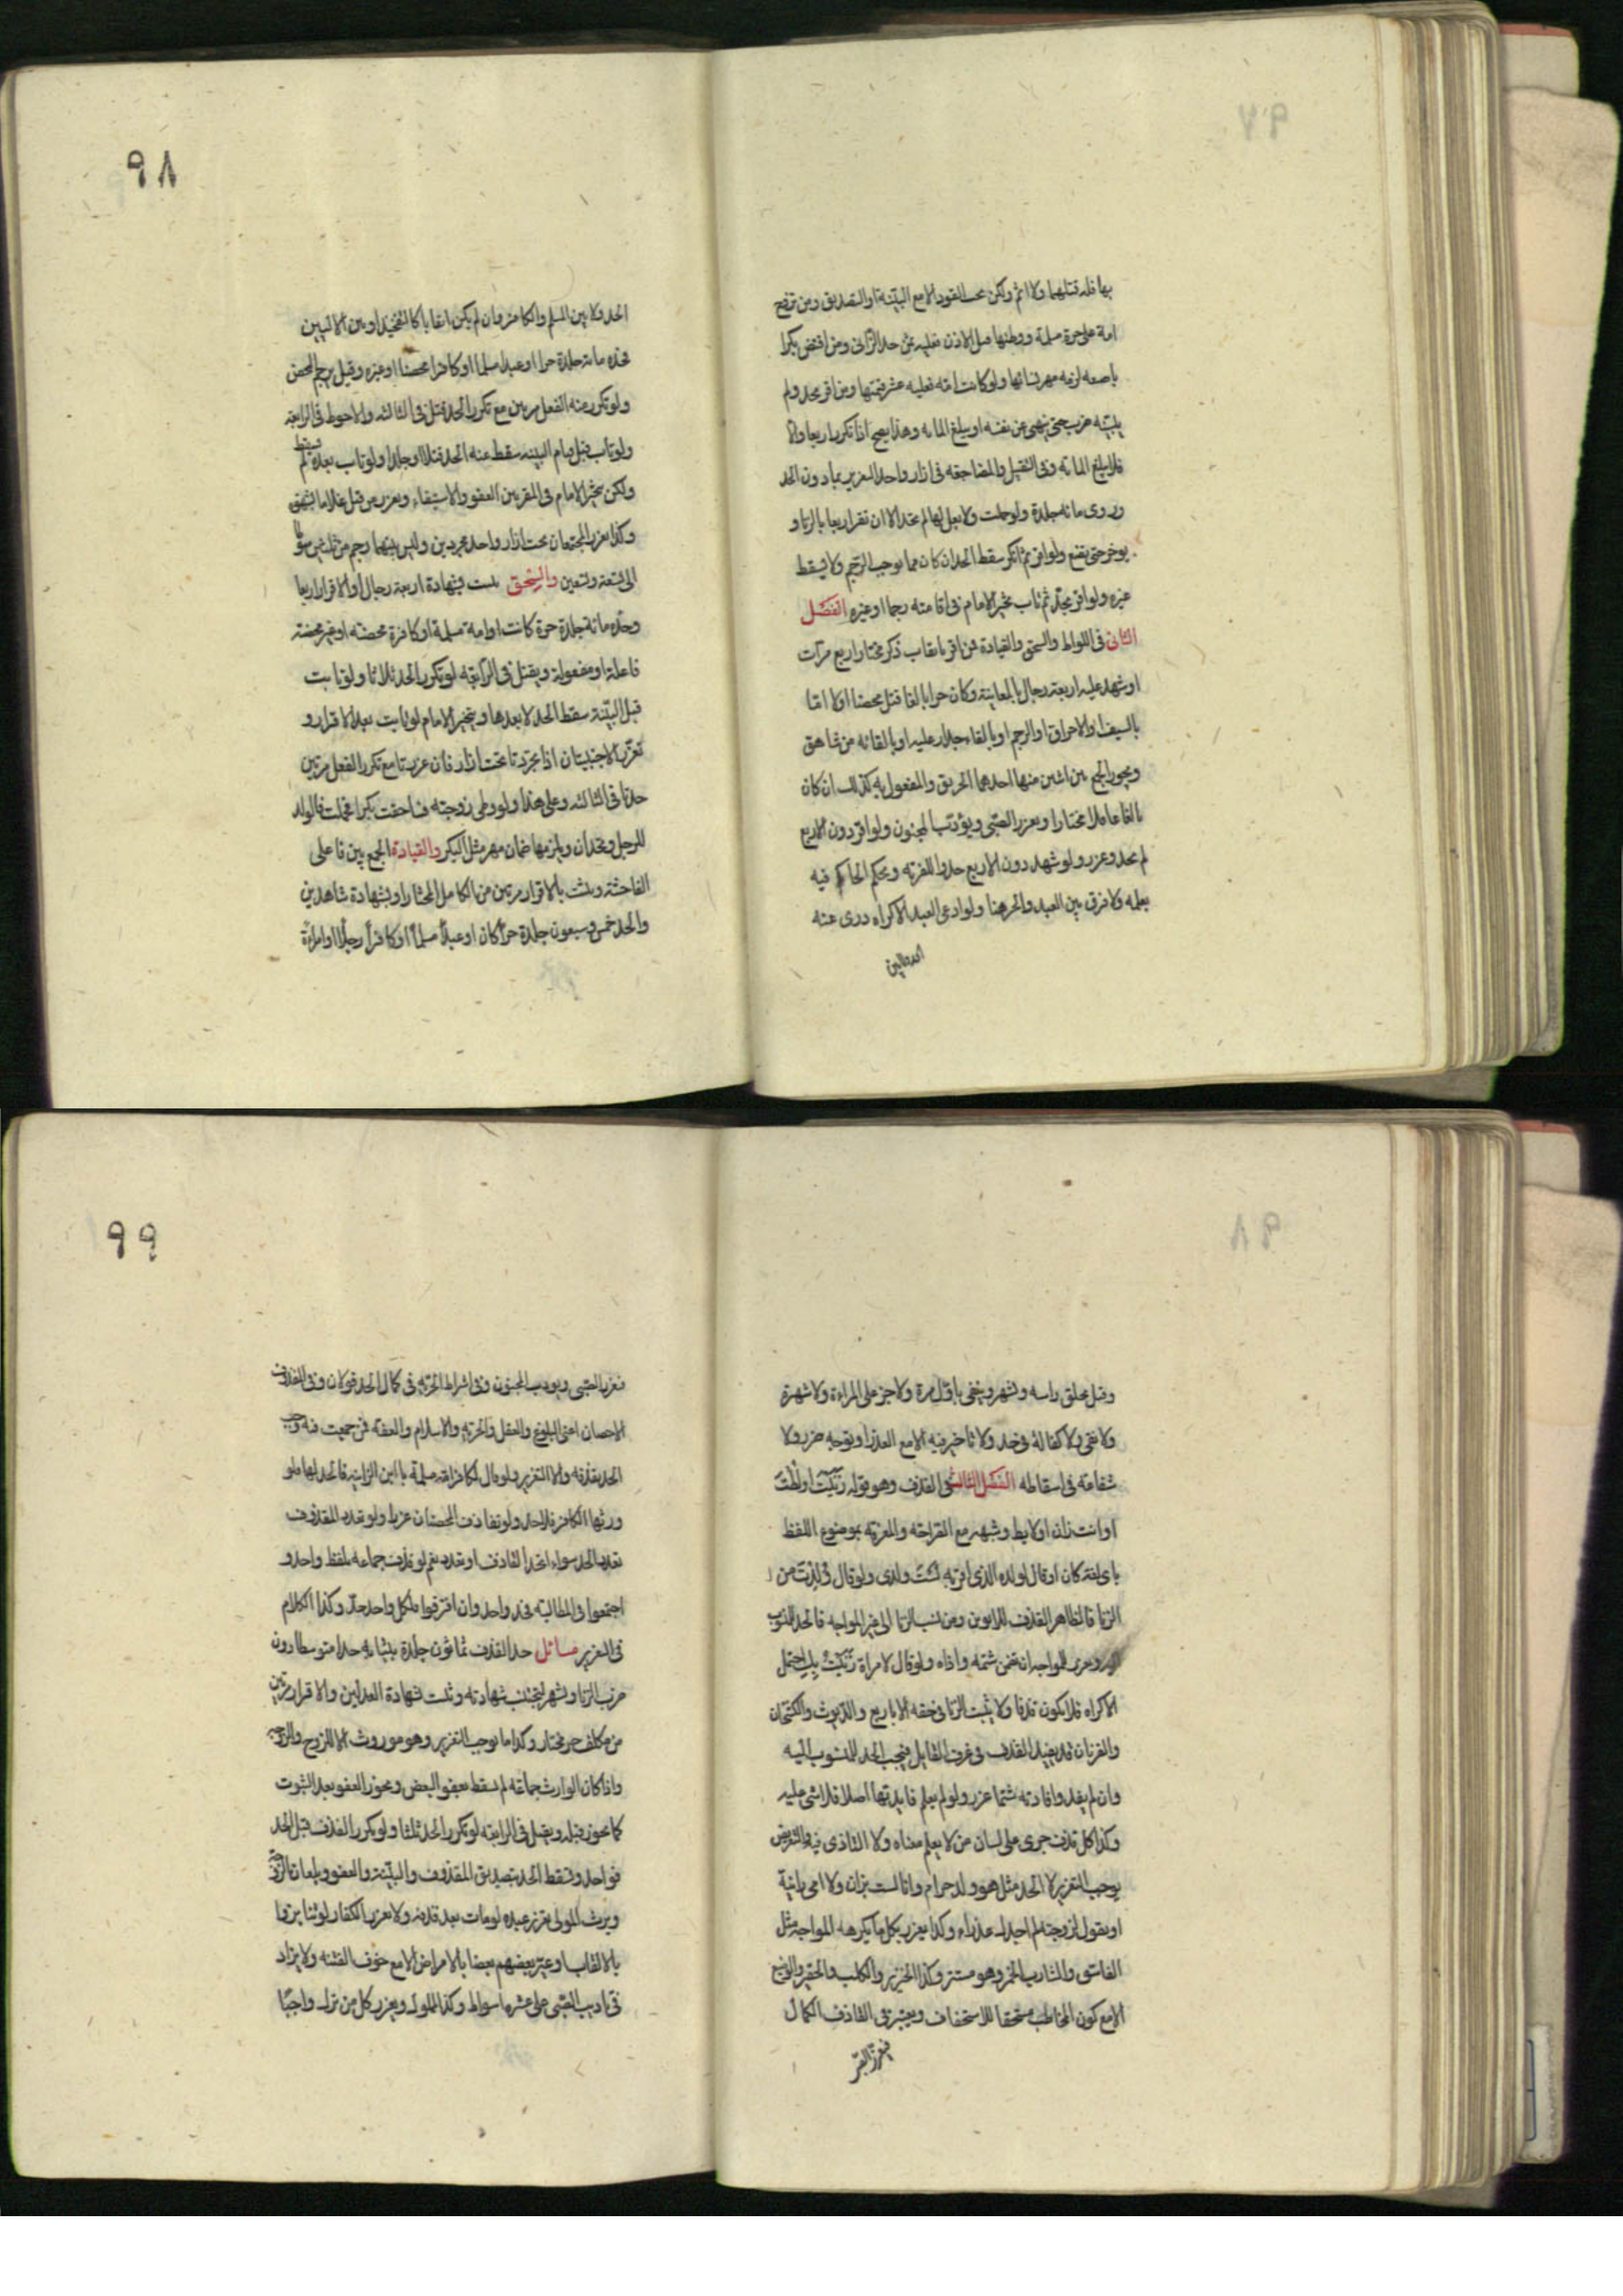 بها فله قتلهما ولا اثم ولكن يجب القود الا مع البينة او التصديق ومن تزوج
امة على حرة مسلمة ووطئها قبل الاذن فعليه ثمن حد الزانى ومن افتض بكرا
باصبعه لزمه مهر نسائها ولو كانت امة فعليه عشر قيمتها ومن اقر بحد ولم
يبينه ضرب حتى ينهى عن نفسه او يبلغ المائة وهذا يصح اذا تكرر اربعا والا
فلا يبلغ المائة وفى التقبيل والمضاجعة فى ازار واحد التعزير بما دون الحد
وروى مائة جلدة ولو حملت ولا بعل لها لم تحد الا ان تقر اربعا بالزنا و
يؤخر حتى تضع ولو اقر ثم انكر سقط الحد ان كان مما يوجب الرجم ولا يسقط
غيره ولو اقر بحد ثم تاب تخير الامام فى اقامته رجما او غيره الفصل
الثانى فى اللواط والسحق والقيادة فمن اقر بايقاب ذكر مختارا اربع مرات
او شهد عليه اربعة رجال بالمعاينة وكان حرا بالغا قتل محصنا او لا اما
بالسيف او الاحراق او الرجم او بالقاء جدار عليه او بالقائه من شاهق
ويجوز الجمع بين اثنين منها احدهما الحريق والمفعول به كذلك ان كان
بالغا عاقلا مختارا ويعزر الصبى ويؤدب المجنون ولو اقر دون الاربع
لم يحد وعزر ولو شهد دون الاربع حدوا للفرية ويحكم الحاكم فيه
بعلمه ولا فرق بين العبد والحر هنا ولو ادعى العبد الاكراه درئ عنه
٩٨
الحد ولا بين المسلم والكافر وان لم يكن ايقابا كالتفخيذ او بين الاليتين
فحده مائة جلدة حرا او عبدا مسلما او كافرا محصنا او غيره وقيل يرجم المحصن
ولو تكرر منه الفعل مرتين مع تكرر الحد قتل فى الثالثة والاحوط فى الرابعة
ولو تاب قبل قيام البينة سقط عنه الحد قتلا او جلدا ولو تاب بعده لم يسقط
ولكن يتخير الامام فى المقر بين العفو والاستيفاء ويعزر من قبل غلاما بشهوة
وكذا يعزر المجتمعان تحت ازار واحد مجردين وليس بينهما رحم من ثلاثين سوطا
الى تسعة وتسعين والسحق يثبت بشهادة اربعة رجال او الاقرار اربعا
وحده مائة جلدة حرة كانت او امة مسلمة او كافرة محصنة او غير محصنة
فاعلة او مفعولة ويقتل فى الرابعة لو تكرر الحد ثلاثا ولو تابت
قبل البينة سقط الحد لا بعدها ويتخير الامام لو تابت بعد الاقرار و
تعزر الاجنبيتان اذا تجردتا تحت ازار فان عزرتا مع تكرر الفعل مرتين
حدتا فى الثالثة وعلى هذا ولو وطى زوجته فساحقت بكرا فحملت فالولد
للرجل وتحدان ويلزمها ضمان مهر مثل البكر والقيادة الجمع بين فاعلى
الفاحشة ويثبت بالاقرار مرتين من الكامل المختار او بشهادة شاهدين
والحد خمس وسبعون جلدة حرا كان او عبدا مسلما او كافرا رجلا او امراءة
وقيل يحلق راسه ويشهر وينفى باول مرة ولا جز على المراءة ولا شهرة
ولا نفى ولا كفالة فى حد ولا تأخير فيه الا مع العذر او توجه ضرر ولا
شفاعة فى اسقاطه الفصل الثالث فى القذف وهو قوله زنيت او لطت
او انت زان او لايط وشبهه مع الصراحة والمعرفة بموضوع اللفظ
باى لغة كان او قال لولده الذى اقر به لست ولدى ولو قال ولدت من
الزنا فالظاهر القذف للابوين ومن نسب الزنا الى غير المواجه فالحد للمنسوب
اليه ويعزر للمواجه ان تضمن شتمه واذاه ولو قال لامراة زنيت بك احتمل
الاكراه فلا يكون قذفا ولا يثبت الزنا فى حقه الا باربع والديوث والكشحان
والقرنان قد يفيد القذف فى عرف القايل فيجب الحد للمنسوب اليه
وان لم يفد وافادته شتما عزر ولو لم يعلم فايدتها اصلا فلا شى عليه
وكذا كل قذف جرى على لسان من لا يعلم معناه ولا التاذى فيه والتعريض
يوجب التعزير لا الحد مثل هو ولد حرام وانا لست بزان ولا امى زانية
او يقول لزوجته لم اجدك عذراء وكذا يعزر بكل ما يكرهه المواجه مثل
الفاسق والشارب الخمر وهو مستتر وكذا الخنزير والكلب والحقير والوضيع
الا مع كون المخاطب مستحقا للاستخفاف ويعتبر فى القاذف الكمال
٩٩
فيعزر الصبى ويؤدب المجنون وفى اشتراط الحرية فى كمال الحد قولان وفى المقذوف
الاحصان اعنى البلوغ والعقل والحرية والاسلام والعفة فمن جمعت فيه وجب
الحد بقذفه والا التعزير ولو قال لكافر امه مسلمة يا ابن الزانية فالحد لها فلو
ورثها الكافر فلا حد ولو تقاذف المحصنان عزرا ولو تعدد المقذوف
تعدد الحد سواء اتحد القاذف او تعدد نعم لو قذف جماعة بلفظ واحد و
اجتمعوا فى المطالبة فحد واحد وان افترقوا فلكل واحد حد وكذا الكلام
فى التعزير مسائل حد القذف ثمانون جلدة بثيابه حدا متوسطا دون
ضرب الزنا ويشهر ليجتنب شهادته ويثبت بشهادة العدلين والاقرار مرتين
من مكلف حر مختار وكذا ما يوجب التعزير وهو موروث الا للزوج والزوجة
واذا كان الوارث جماعة لم يسقط بعفو البعض ويجوز العفو بعد الثبوت
كما يجوز قبله ويقتل فى الرابعة لو تكرر الحد ثلثا ولو تكرر القذف قبل الحد
فواحد ويسقط الحد بتصديق المقذوف والبينة والعفو وبلعان الزوجة
ويرث المولى تعزير عبده لو مات بعد قذفه ولا يعزر الكفار لو تنابزوا
بالالقاب او عير بعضهم بعضا بالامراض الا مع خوف الفتنة ولا يزاد
فى تاديب الصبى على عشرة اسواط وكذا المملوك ويعزر كل من ترك واجبا